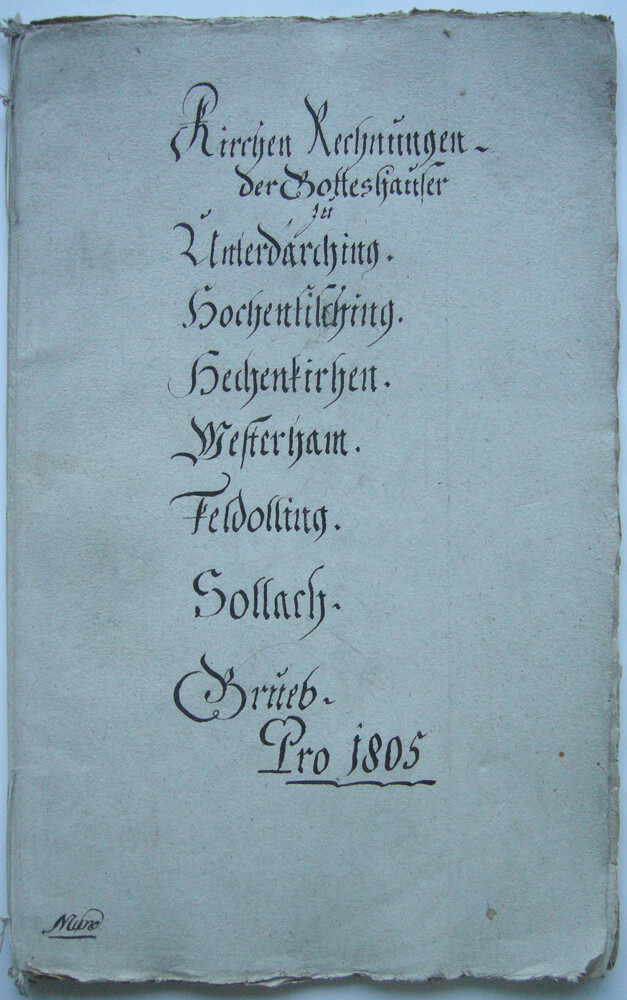 Kirchen Rechnungen
der Gotteshäuser
zu
Unterdärching.
Hochenkilching.
Hechenkirhen.
Westerham.
Feldolling.
Sollach.
Grueb.
Pro 1805